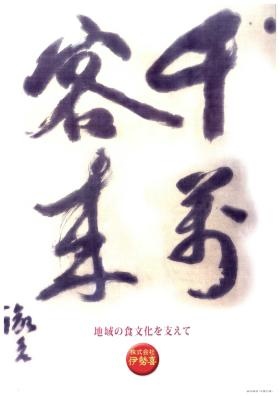 千萬
客来
地域の食文化を支えて
株式会社
伊勢喜